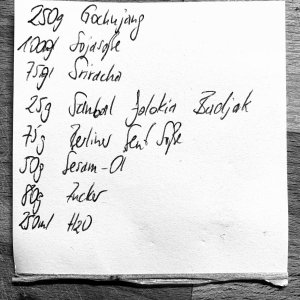 250g Gochujang
100ml Sojasoße
75g Sriracha
25g Sambal Jolokia Budjak
75g Berliner Senf Soße
50g Sesam-Öl
80g Zucker
250ml H2O